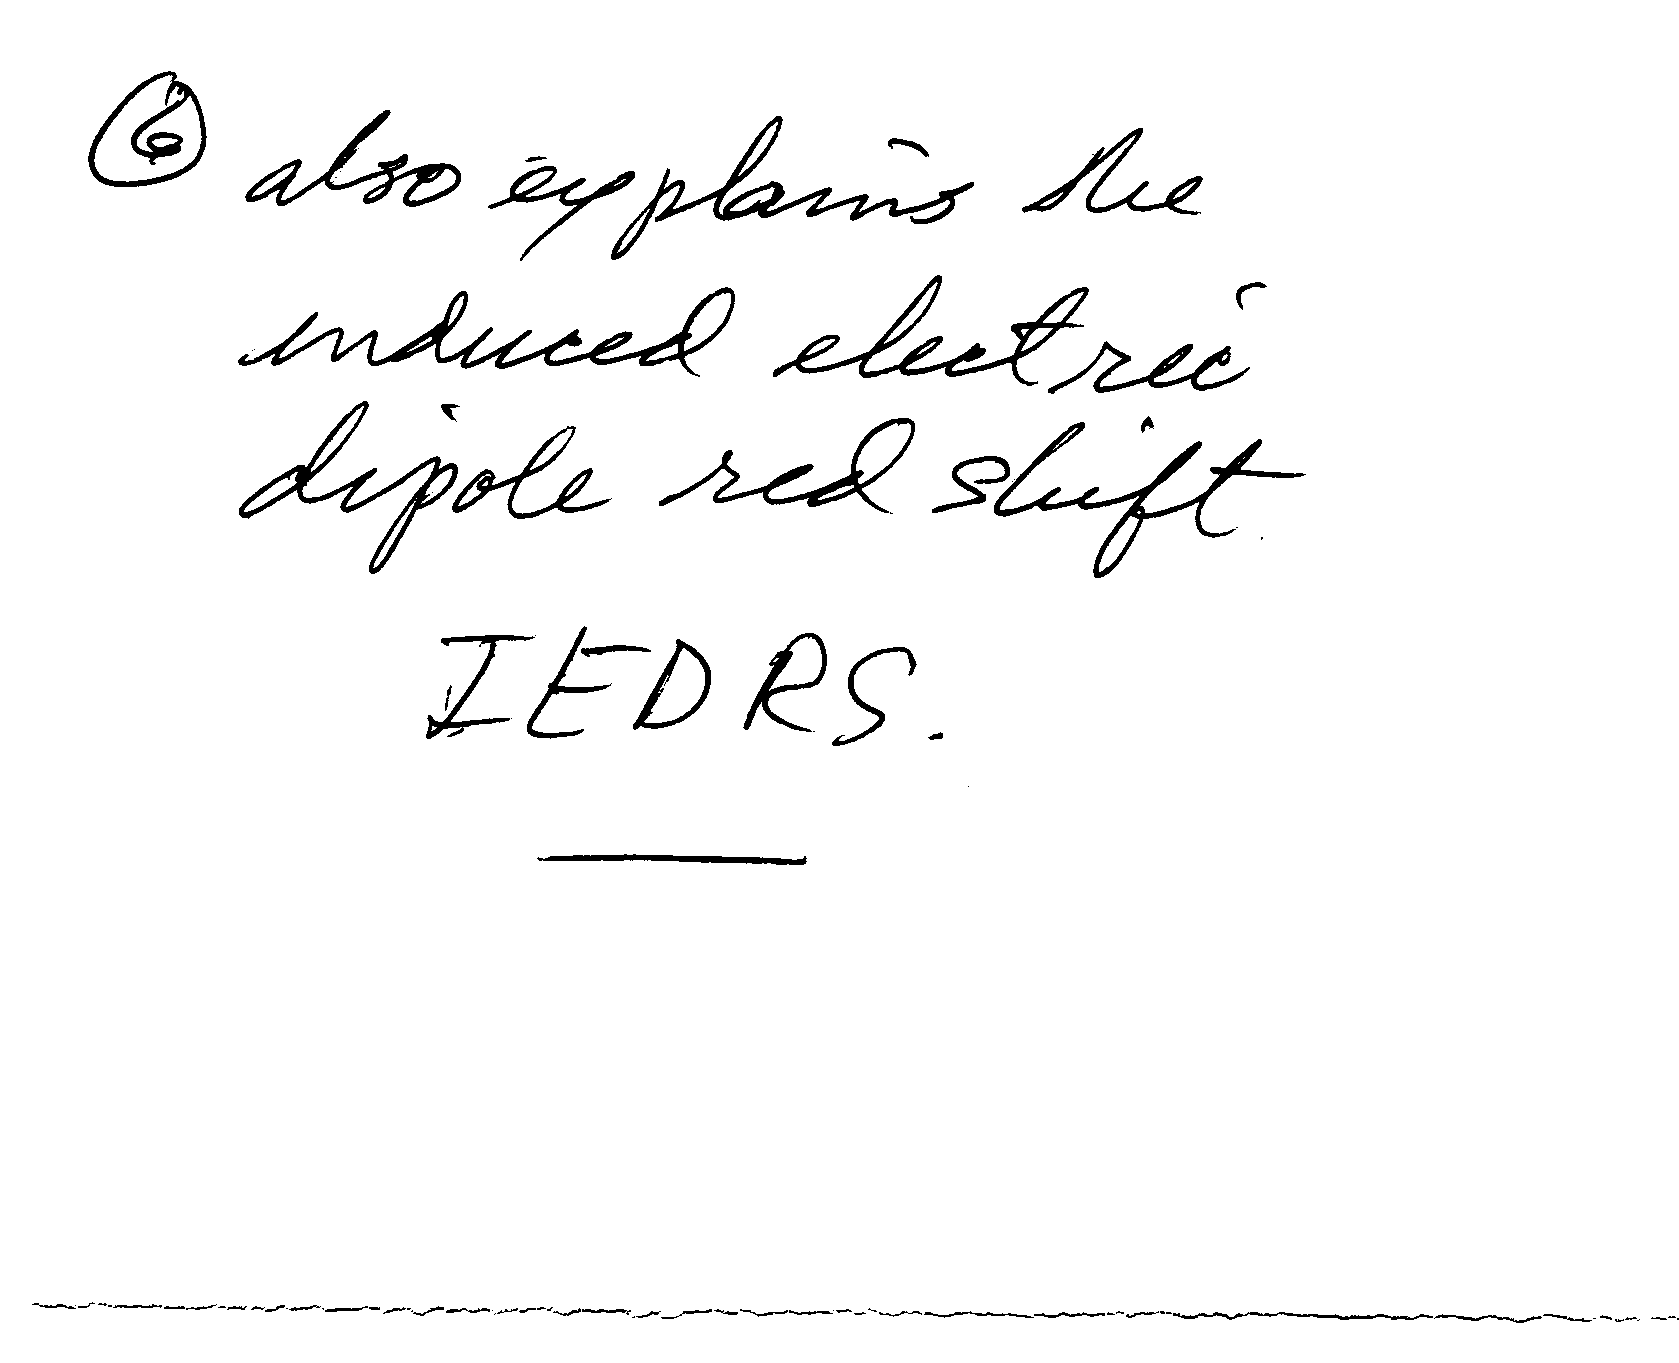 ⑥ also explains the
induced electric
dipole red shift.
IEDRS.